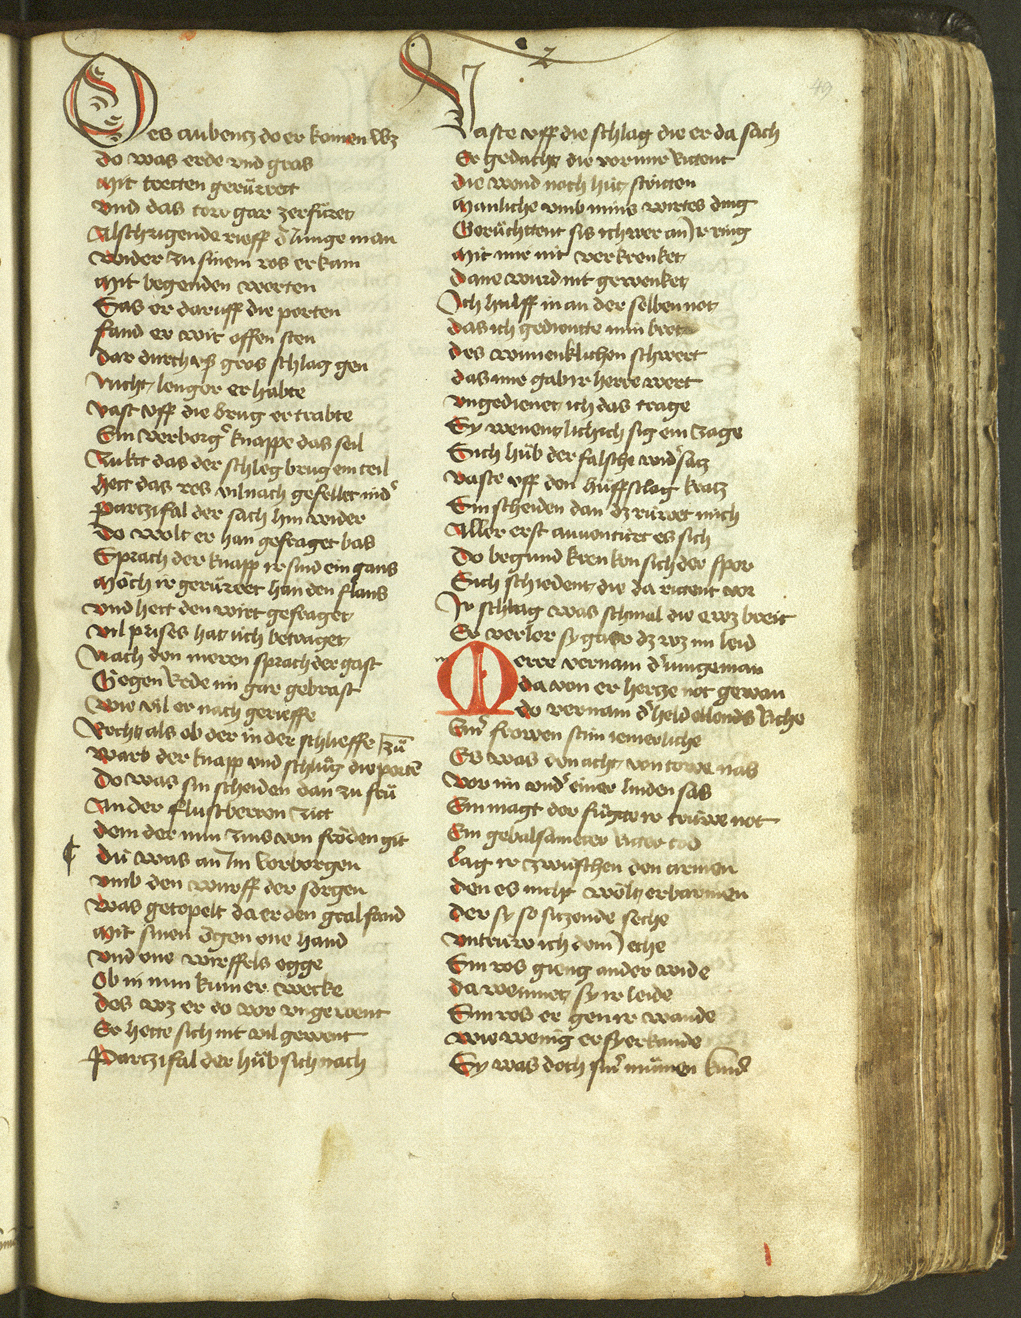 49
Des aubentz do er komen wz
do was erde vnd gras
Mit tretten gerürret
vnd das torr gar zerfüret
Alschrigende rieff der Junge man
wider zu sinem ros er kam
Mit begenden worten
Sas er daruff die porten
fand er wit offen sten
dar durch vs gros schlag gen
Nicht lenger er habte
vast vff die brug er trabte
Ein verborgner knappe das seil
Zukt das der schleg brug ein teil
hett das ros vilnach gefellet nider
Partzifal der sach hin wider
do wolt er han gefraget bas
Sprach der knapp ir sind ein gans
Möch ir gerürret han den flans
vnd hett den wirt gefraget
vil prises hat üch betraget
Nach den meren sprach der gast
Gegen Rede im gar gebrast
wie vil er nach gerieffe
Recht als ob der in der schlieffe zů
warb der knapp vnd schlůg die porten
Do was sin scheiden dan zu frü
An der flustberren Zitt
dem der nun zins von fröden git
dü was an Im verborgen
vmb den wurff der sorgen
was getopelt da er den gral fand
Mit sinen ögen one hand
vnd one würffels egge
Ob in nun kumer wecke
des wz er do vor vngewent
Er hette sich nit vil gewent
Partzifal der hüb sich nach
Vaste vff die schlag die er da sach
Er gedacht die vor mir Rittent
die wend noch hüt stritten
Manliche vmb mins wirtes ding
Gerüchttent sis ich wer an Ir ring
Mit mir nit verkrenket
dane wurd nit gewenket
Ich hulff in an der selben not
das ich gediente min brott
des wunenklichen schwert
das mir gab ir herre wert
vngedienet ich das trage
Sy wenent lichich sig ein Zage
Sich hüb der falsche widersatz
vaste vff den hüffschlag kratz
Ein scheiden dan dz rüwet mich
Aller erst auventürt es sich
Do begund krenken sich der spor
Sich schiedent die da rittent vor
Ir schlag was schmal die e wz breit
Er verlor sy gar dz wz im leid
Merre vernam der iunge man
da von er hertze not gewan
do vernam der held ellends riche
Einer frowen stim iemerliche
Es was den acht von towe nas
vor im vnder einer linden sas
Ein magt der fügte ir trüwe not
Ein gebalsameter ritter tod
Lag ir zwüschen den armen
den es nicht wölt erbarmen
der sy so sitzende seche
vntrüw ich dem Jeche
Sin ros gieng ander wide
da weinnet sy ir leide
Sin ros er gen ir wande
wie wenig er sy erkande
Sy was doch siner mümen kind